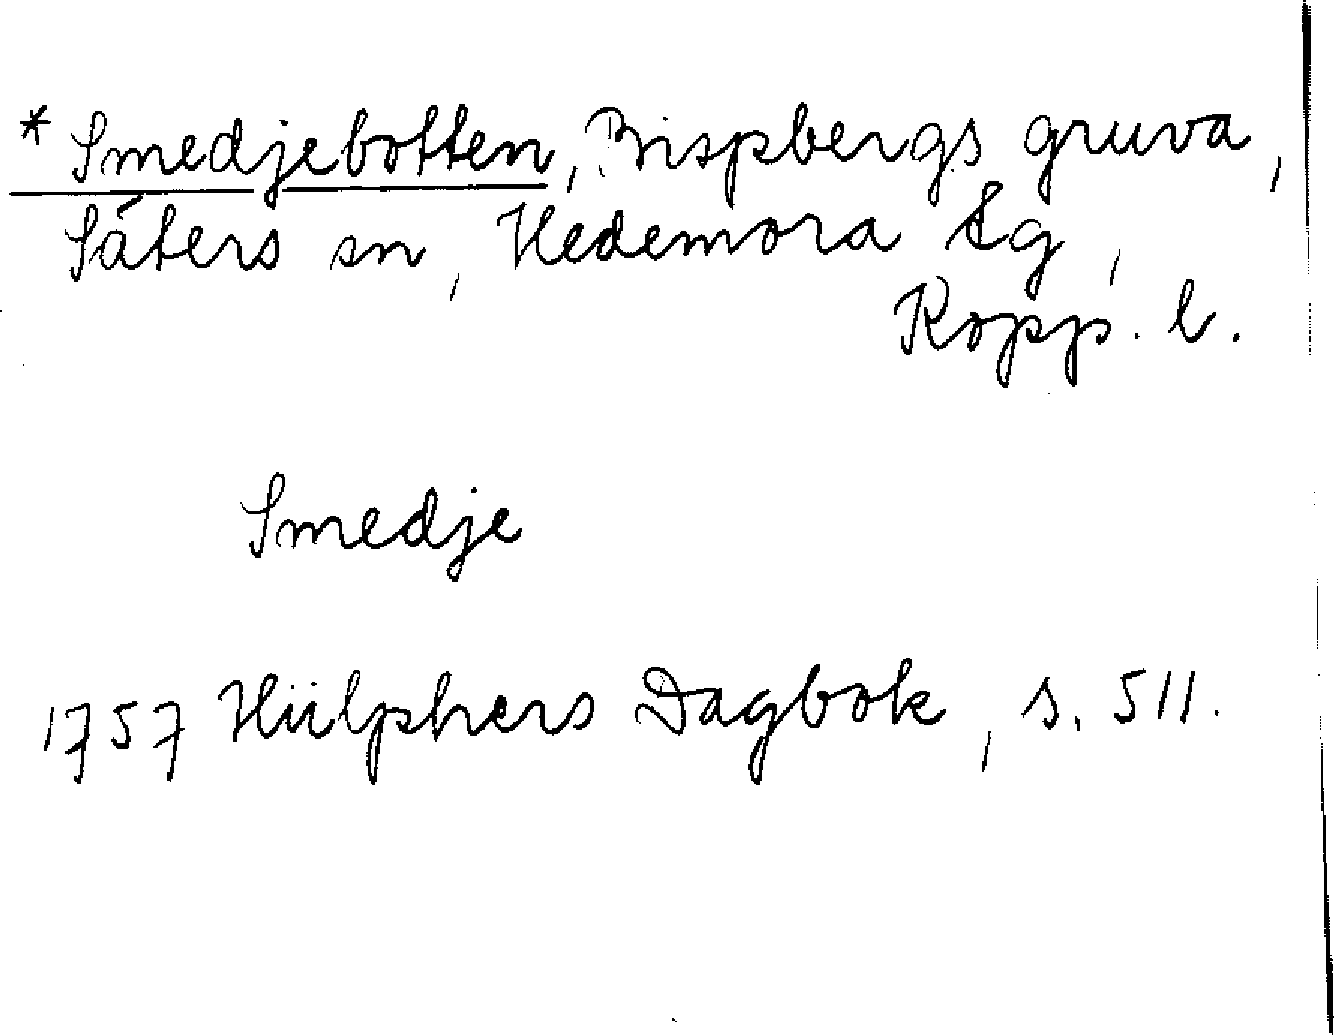 * Smedjebotten, Bispbergs gruva,
Säters sn, Hedemora tg,
Kopp. l.
Smedje
1757 Hülphers Dagbok, s. 511.